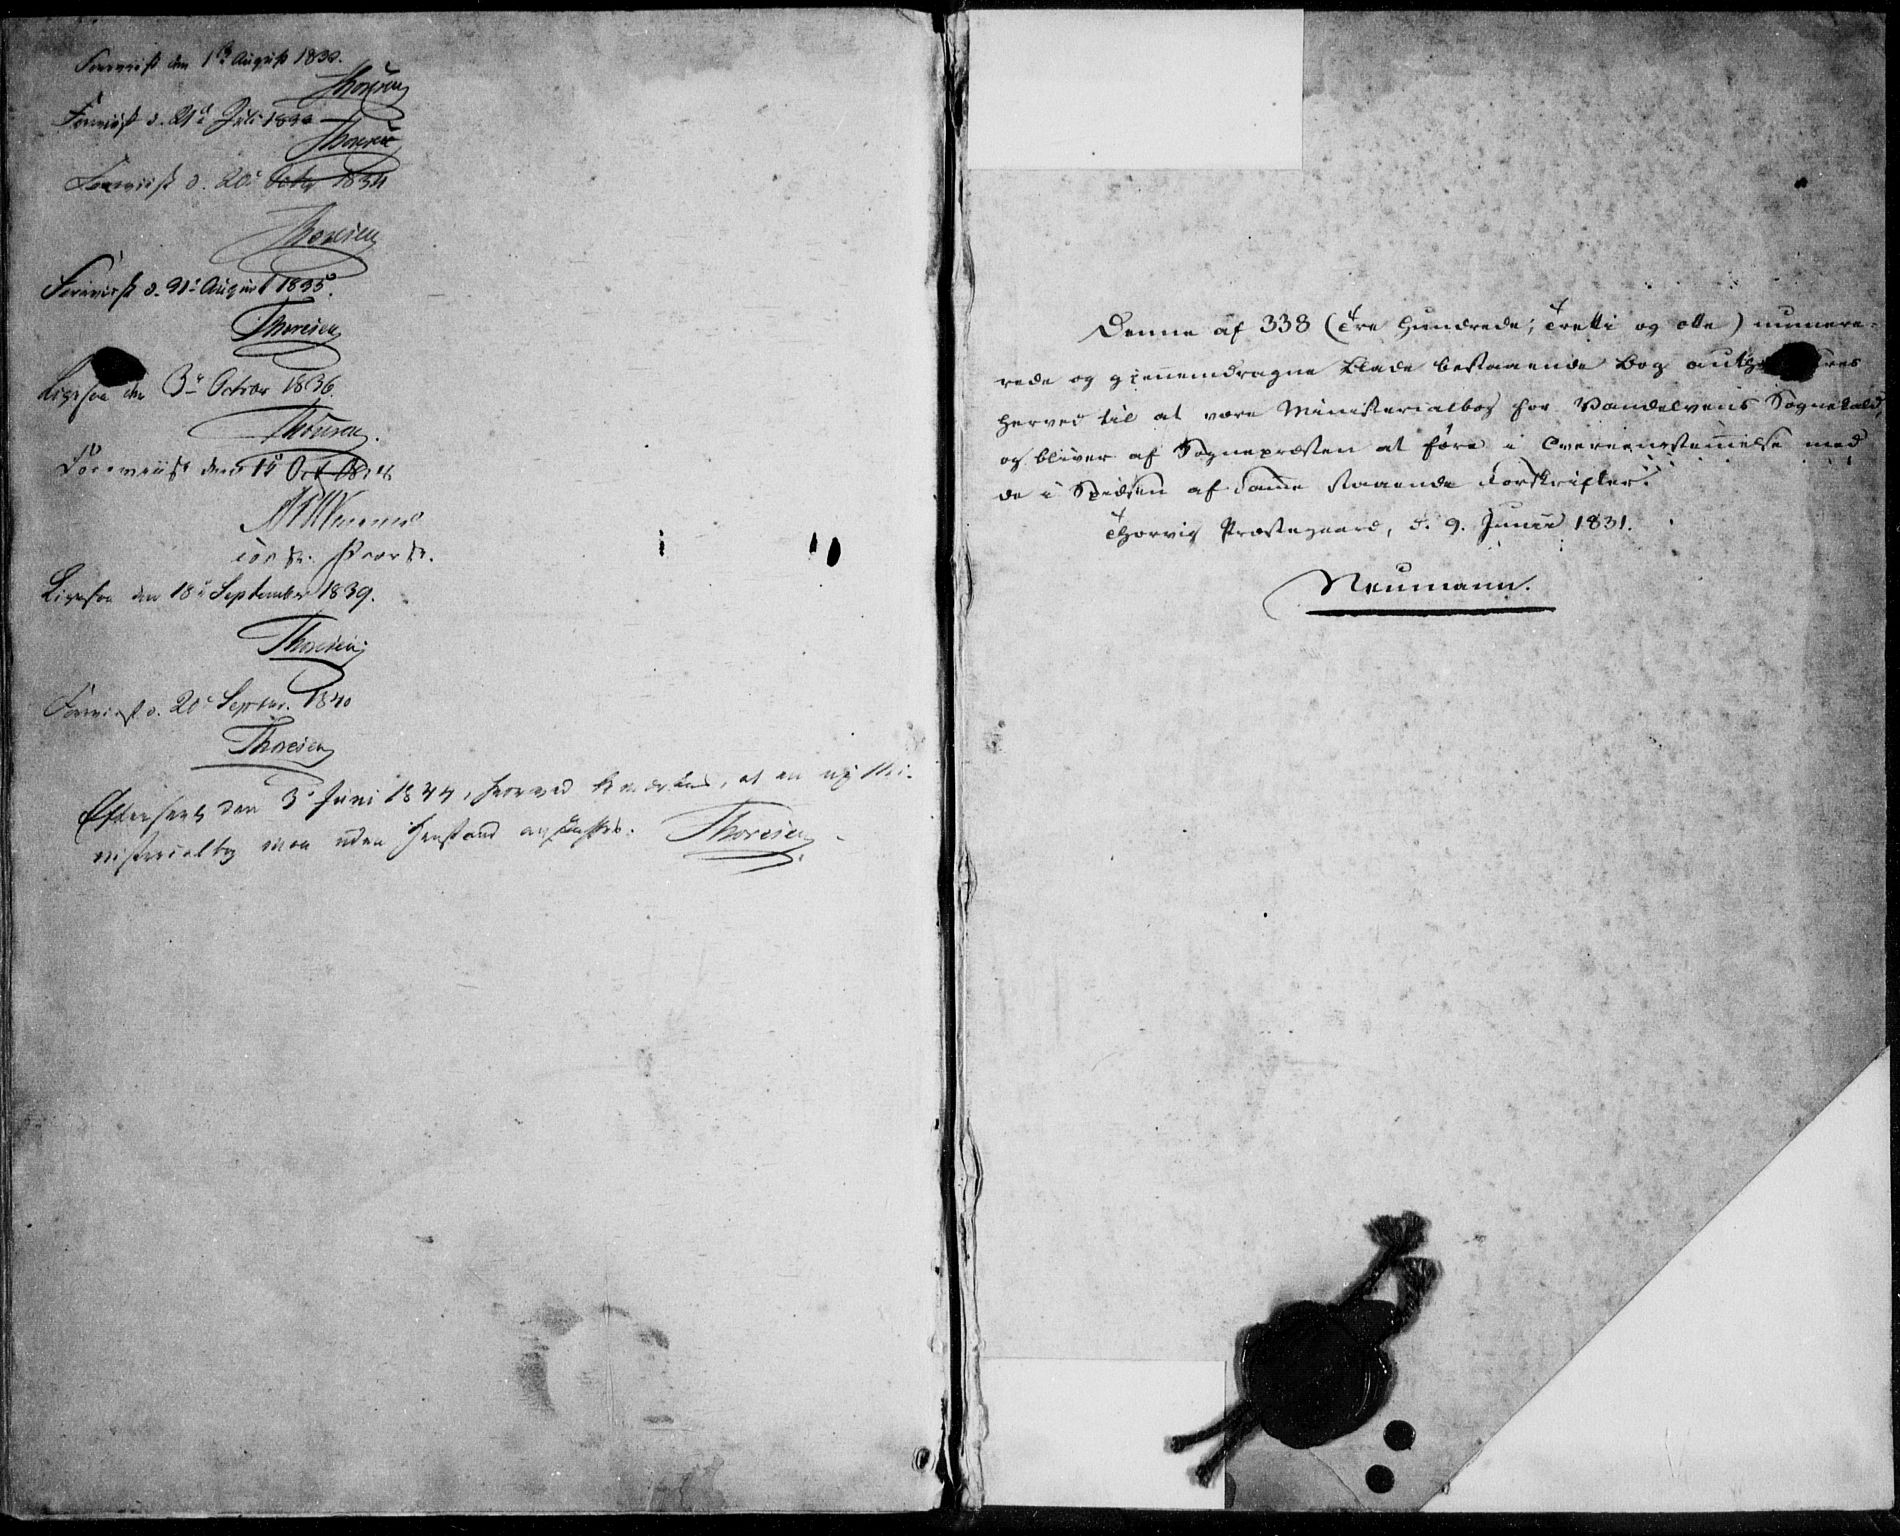 Foreviist den 1ste August 1832.
Thoresen
Foreviist d. 21d Juli
Thoresen
Foreviist d. 20d Octbr 1834
Thoresen
Foreviist d. 31d August 1835.
Thoresen
Ligesaa den 3d October 1836.
Thoresen.
Foreviist den 14 Oct
const. Provst.
Ligesaa den 18d September 1839.
Thoresen
Foreviist d. 20d Septbr. 1840
Thoresen
Efterseet den 3d Juni 1844, hvorved bemærkes, at en ny Mi-
nisterialbog maa uden Henstand anskaffes. Thoresen
Denne af 338 (Tre Hundrede, Tretti og otte) numere-
rede og gjennemdragne Blade bestaaende Bog
herved til at være Ministerialbog for Vandelvens Sognekald,
og bliver af Sognepræsten at føre i Overeensstemmelse med
de i Spidsen af samme staaende Forskrifter.
Thorvig Præstegaard, d. 9. Junii 1831.
Neumann.